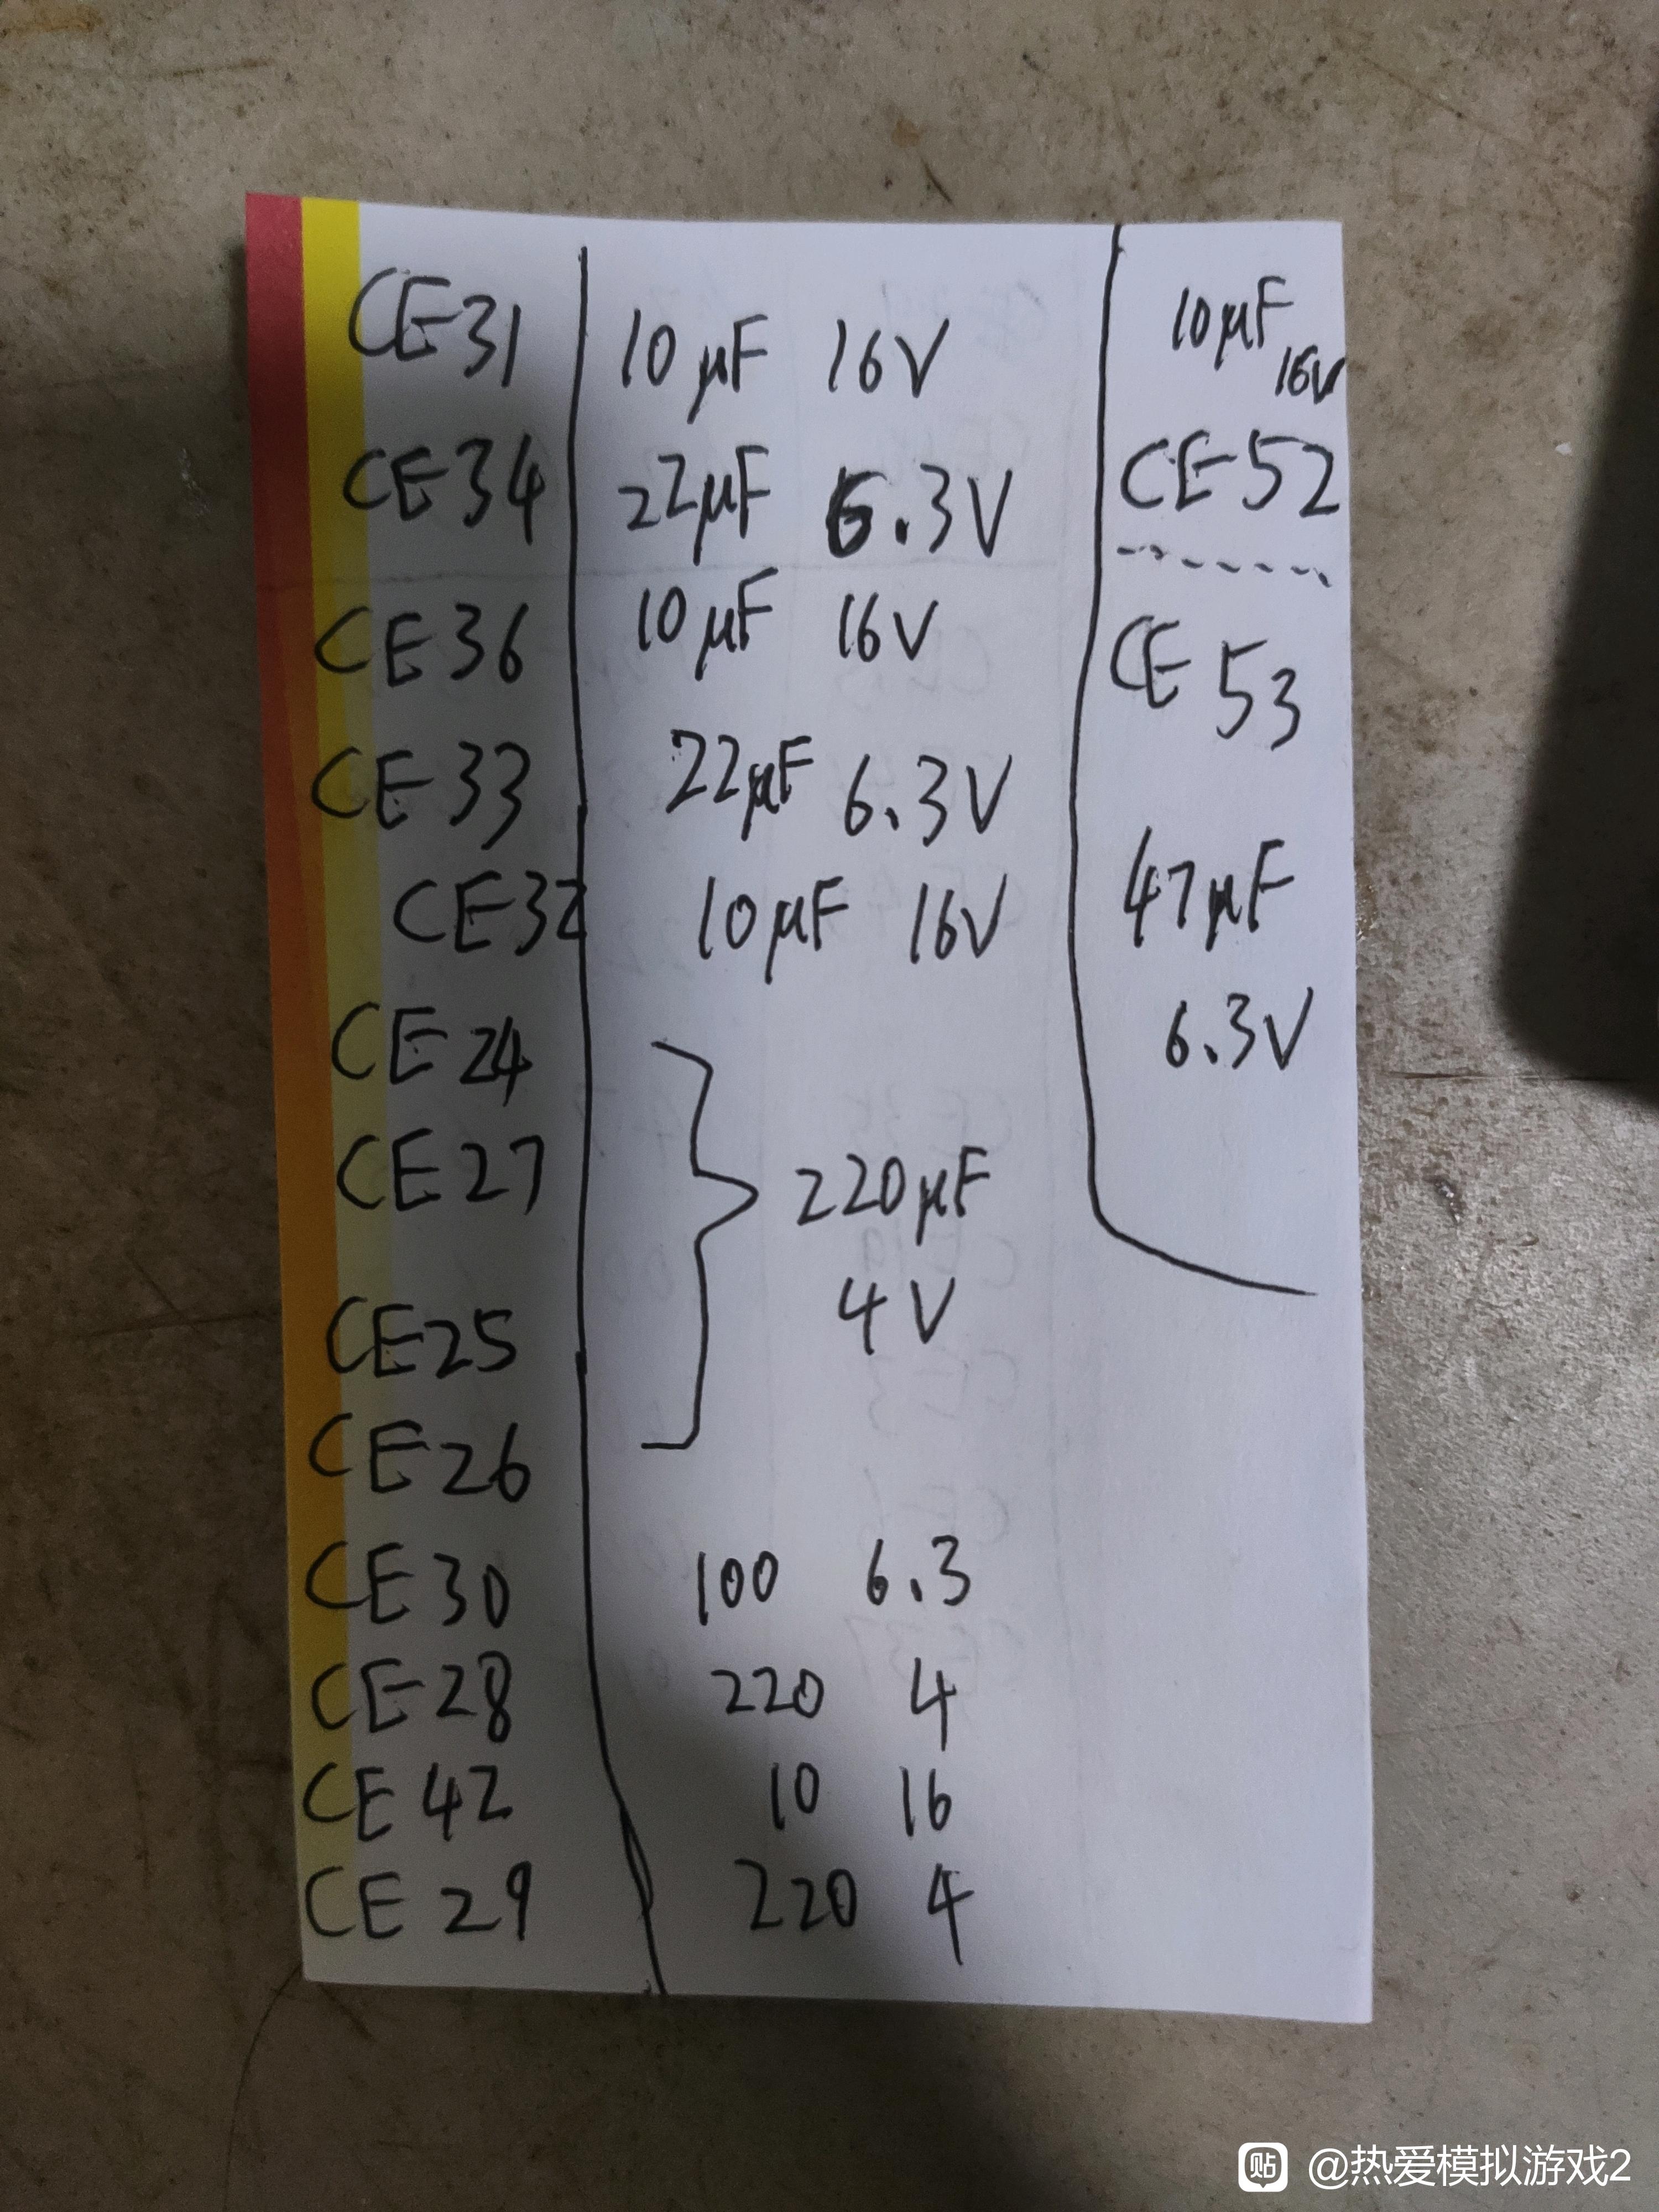 CE31 10μF 16V
CE34 22μF 6.3V
CE36 10μF 16V
CE33 22μF 6.3V
CE32 10μF 16V
CE24
CE27
220μF
4V
CE25
CE26
CE30 100 6.3
CE28 220 4
CE42 10 16
CE29 220 4
10μF
16V
CE52
CE53
47μF
6.3V
贴 @热爱模拟游戏2